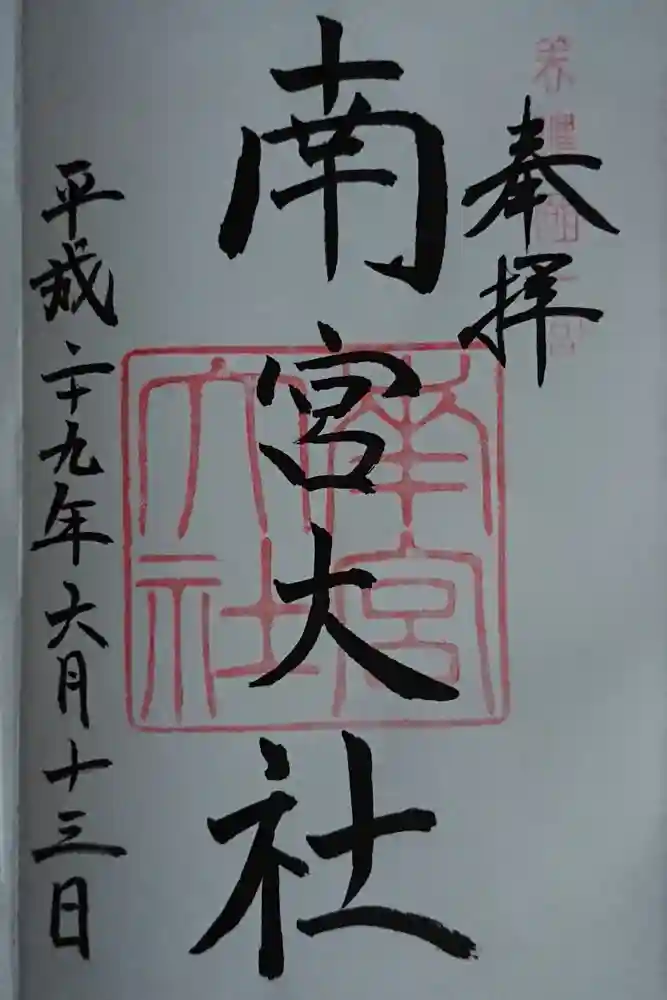 奉拝
美濃國一宮
南宮大社
南宮大社
平成二十九年六月十三日